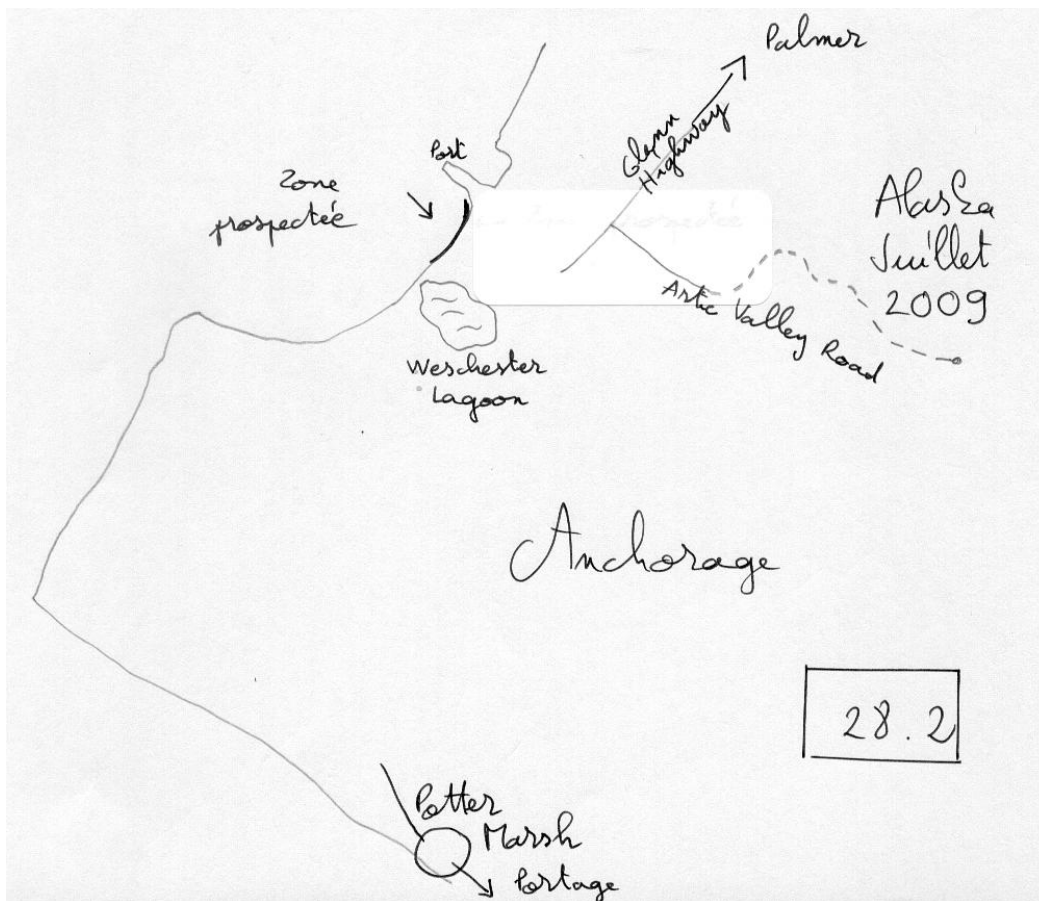 Palmer
Glenn
Highway
Port
Zone
prospectée
Alaska
Juillet
2009
Artic Valley Road
Weschester
Lagoon
Anchorage
28.2
Potter
Marsh
Portage